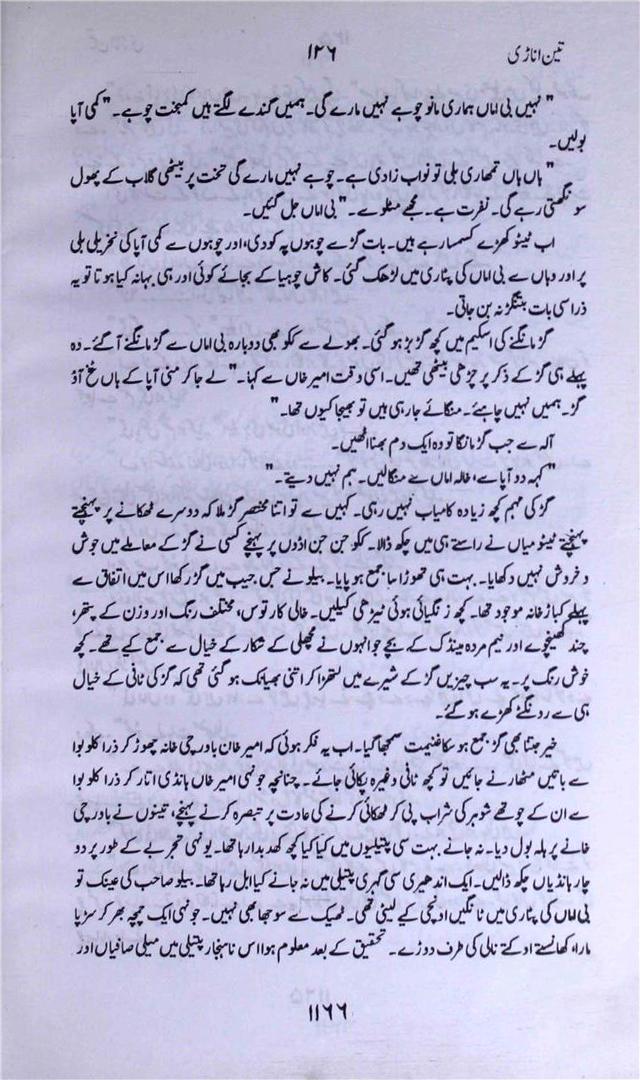 تین اناڑی
۱۲۶
" نہیں بی اماں ہماری مانو چوہے نہیں مارے گی۔ ہمیں گندے لگتے ہیں کمبخت چوہے۔" کمی آپا
بولیں۔
" ہاں ہاں تمھاری بلی تو نواب زادی ہے۔ چوہے نہیں مارے گی تخت پر بیٹھی گلاب کے پھول
سونگھتی رہے گی۔ نفرت ہے۔ مجھے مٹلوے۔" بی اماں جل گئیں۔
اب ٹیٹو کھڑے کسمسا رہے ہیں۔ بات گڑ سے چوہوں پہ کودی، اور چوہوں سے کمی آپا کی نخریلی بلی
پر اور وہاں سے بی اماں کی پٹاری میں لڑھک گئی۔ کاش چوہیا کے بجائے کوئی اور ہی بہانہ کیا ہوتا تو یہ
ذرا سی بات بتنگڑ نہ بن جاتی۔
گڑ مانگنے کی اسکیم میں کچھ گڑبڑ ہو گئی۔ بھولے سے ککو بھی دوبارہ بی اماں سے گڑ مانگنے آ گئے۔ وہ
پہلے ہی گڑ کے ذکر پر چڑھی بیٹھی تھیں۔ اسی وقت امیر خاں سے کہا۔ "لے جا کر منی آپا کے ہاں پٹخ آؤ
گڑ۔ ہمیں نہیں چاہئے۔ منگائے جا رہی ہیں تو بھیجا کیوں تھا۔"
آلہ سے جب گڑ مانگا تو وہ ایک دم بھنا اٹھیں۔
"کہہ دو آپا سے، خالہ اماں سے منگالیں۔ ہم نہیں دیتے۔"
گڑ کی مہم کچھ زیادہ کامیاب نہیں رہی۔ کہیں سے تو اتنا مختصر گڑ ملا کہ دوسرے ٹھکانے پر پہنچتے
پہنچتے ٹیٹو میاں نے راستے ہی میں چکھ ڈالا۔ ککو جن جن اڈوں پر پہنچے کسی نے گڑ کے معاملے میں جوش
و خروش نہیں دکھایا۔ بہت ہی تھوڑا سا جمع ہو پایا۔ ببلو نے جس جیب میں گڑ رکھا اس میں اتفاق سے
پہلے کباڑ خانہ موجود تھا۔ کچھ زنگیائی ہوئی ٹیڑھی کیلیں۔ خالی کارتوس، مختلف رنگ اور وزن کے پتھر،
چند کینچوے اور نیم مردہ مینڈک کے بچے جو انہوں نے مچھلی کے شکار کے خیال سے جمع کیے تھے۔ کچھ
خوش رنگ پر۔ یہ سب چیزیں گڑ کے شیرے میں لتھڑ کر اتنی بھیانک ہو گئی تھی کہ گڑ کی ٹافی کے خیال
ہی سے رونگٹے کھڑے ہو گئے۔
خیر جتنا بھی گڑ جمع ہو سکا غنیمت سمجھا گیا۔ اب یہ فکر ہوئی کہ امیر خان باورچی خانہ چھوڑ کر ذرا کلو بوا
سے باتیں مٹھارنے جائیں تو کچھ ٹافی وغیرہ پکائی جائے۔ چنانچہ جونہی امیر خاں ہانڈی اتار کر ذرا کلو بوا
سے ان کے چوتھے شوہر کی شراب پی کر ٹھکائی کرنے کی عادت پر تبصرہ کرنے پہنچے، تینوں نے باورچی
خانے پر ہلہ بول دیا۔ نہ جانے بہت سی پتیلیوں میں کیا کیا کچھ کھدبدا رہا تھا۔ یونہی تجربے کے طور پر دو
چار ہانڈیاں چکھ ڈالیں۔ ایک اندھیری سی گہری پتیلی میں نہ جانے کیا ابل رہا تھا۔ ببلو صاحب کی عینک تو
بی اماں کی پٹاری میں ٹانگیں اونچی کیے لیٹی تھی۔ ٹھیک سے سوجھا بھی نہیں۔ جونہی ایک چمچہ بھر کر سڑپا
مارا، کھانستے اوکتے نالی کی طرف دوڑے۔ تحقیق کے بعد معلوم ہوا اس ناہنجار پتیلی میں میلی صافیاں اور
۱۱۶۶